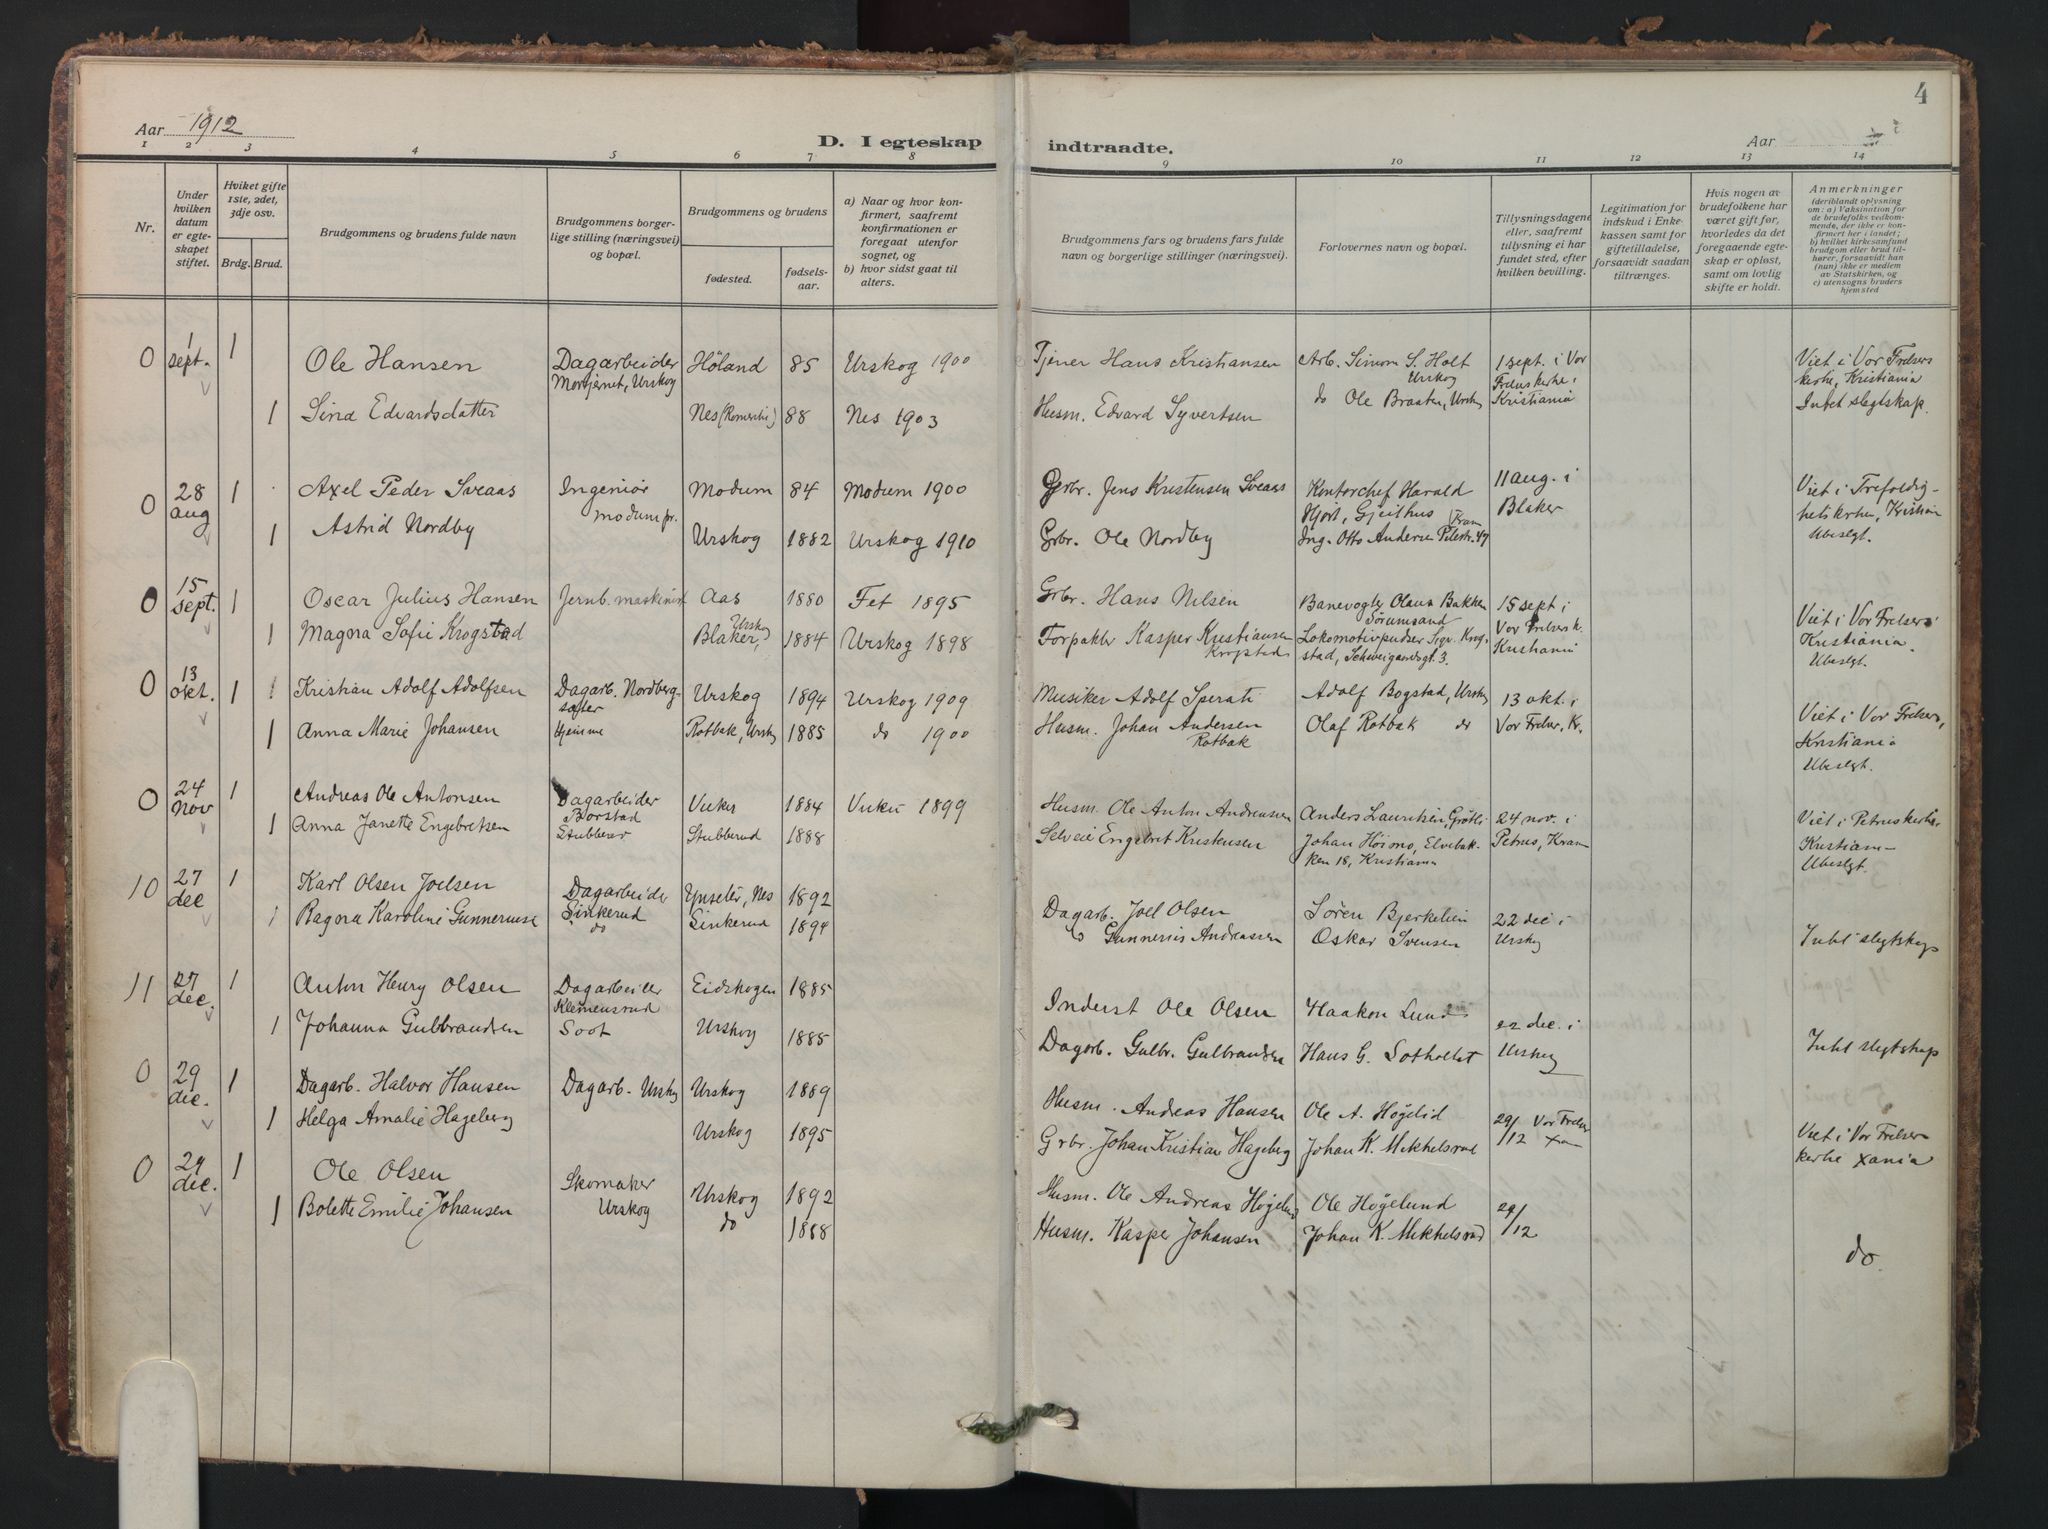 4
Aar 1912
D. I egteskap indtraadte.
Aar
1 2 3 4 5 6 7 8 9 10 11 12 13 14
Nr.
Under hvilken datum er egteskapet stiftet.
Hvilket gifte 1ste, 2det, 3dje osv.
Brdg. Brud.
Brudgommens og brudens fulde navn
Brudgommens borgerlige stilling (næringsvei) og bopæl.
Brudgommens og brudens
fødested.
fødselsaar.
a) Naar og hvor konfirmert, saafremt konfirmationen er foregaat utenfor sognet, og
b) hvor sidst gaat til alters.
Brudgommens fars og brudens fars fulde navn og borgerlige stillinger (næringsvei).
Forlovernes navn og bopæl.
Tillysningsdagene eller, saafremt tillysning ei har fundet sted, efter hvilken bevilling.
Legitimation for indskud i Enkekassen samt for giftetilladelse, forsaavidt saadan tiltrænges.
Hvis nogen av brudefolkene har været gift før, hvorledes da det foregaaende egteskap er opløst, samt om lovlig skifte er holdt.
Anmerkninger (deriblandt oplysning om: a) Vaksination for de brudefolks vedkommende, der ikke er konfirmert her i landet; b) hvilket kirkesamfund brudgom eller brud tilhører, forsaavidt han (hun) ikke er medlem av Statskirken, og c) utensogns bruders hjemsted
0 1 sept. 1 Ole Hansen Dagarbeider Morjernet, Urskog Høland 85 Urskog 1900 Tjener Hans Kristiansen Arb. Simon S. Holt Urskog 1 sept. i Vor Frelserskerke i Kristiania Viet i Vor Frelsers kerke, Kristiania Intet slegtskap.
1 Sina Edvardsdatter Nes (Romerike) 88 Nes 1903 Husm. Edvard Syvertsen do Ole Braaten, Urskog
0 28 aug 1 Axel Peder Sveaas Ingeniør Modum pr. Modum 84 Modum 1900 Grbr. Jens Kristensen Sveaas Kontorchef Harald Hjort, Gjeithus 11 aug. i Blaker Viet i Trefoldighetskerke, Kristiania Ubeslegt.
1 Astrid Nordby Urskog 1882 Urskog 1910 Grbr. Ole Nordby Ing. Otto Andersen Pilestr. 47 Kram
0 15 sept. 1 Oscar Julius Hansen Jernb. maskinist Aas 1880 Fet 1895 Grbr. Hans Nilsen Banevogter Olaus Bakken Sørumsand 15 sept i Vor Frelsers k. Kristiania Viet i Vor Frelsers Kristiania. Ubeslgt.
1 Magna Sofie Krogstad Blaker, Urskog 1884 Urskog 1898 Forpakter Kasper Kristiansen Krogstad Lokomotivpudser Sigv. Krogstad, Schweigaardsgt. 3.
0 13 okt. 1 Kristian Adolf Adolfsen Dagarb. Nordbergsæter Urskog 1894 Urskog 1909 Musiker Adolf Sperati Adolf Bogstad, Urskog 13 okt. i Vor Frelser, Kr. Viet i Vor Frelsers, Kristiania Ubeslgt.
1 Anna Marie Johansen Hjemme Rotbak, Urskog 1885 do 1900 Husm. Johan Andersen Rotbak Olaf Rotbak do
0 24 Nov 1 Andreas Ole Antonsen Dagarbeider Borstad Vuku 1884 Vuku 1899 Husm. Ole Anton Andreassen Anders Lauritsen, Grøtli 24 nov. i Petrus, Kram Viet i Petruskerke, Kristiania Ubeslgt.
1 Anna Janette Engebretsen Stubberud Stubberud 1888 Selveie Engebret Kristensen Johan Hoimo, Elvebakken 18, Kristiania
10 27 dec 1 Karl Olsen Joelsen Dagarbeider Sinkerud Ypseter, Nes 1892 Dagarb. Joel Olsen Søren Bjerkelien 22 dec i Urskog Intet slegtskap
1 Ragna Karoline Gunneriusen do Sinkerud 1894 do Gunnerius Andreassen Oskar Svensen
11 27 dec. 1 Anton Henry Olsen Dagarbeider Klemensrud Eidskogen 1885 Inderst Ole Olsen Haakon Lund 22 dec. i Urskog Intet slegtskap
1 Johanna Gulbrandsen Soot Urskog 1885 Dagarb. Gulbr. Gulbrandsen Hans G. Sotholtet
0 29 dec. 1 Dagarb. Halvor Hansen Dagarb. Urskog Urskog 1889 Husm. Andreas Hansen Ole A. Høgelid 29/12 Vor Frelser Xa Viet i Vor Frelsers kerke Xania
1 Helga Amalie Hageberg Urskog 1895 Grbr. Johan Kristian Hageberg Johan K. Mikkelsrud
0 29 dec. 1 Ole Olsen Skomaker Urskog Urskog 1892 Husm. Ole Andreas Høgelund Ole Høgelund 29/12 do.
1 Bolette Emilie Johansen do 1888 Husm. Kasper Johansen Johan K. Mikkelsrud